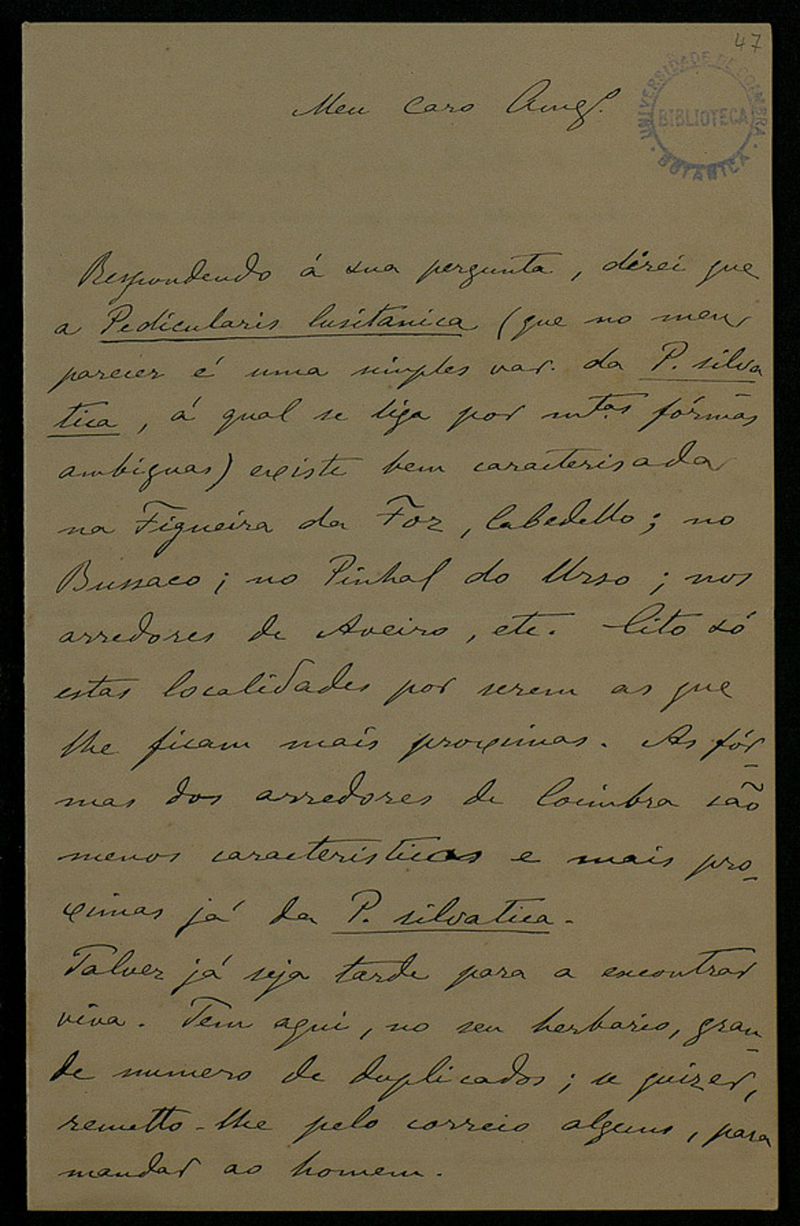 47
UNIVERSIDADE DE COIMBRA
BIBLIOTECA
BOTANICA
Meu Caro Amg.º
Respondendo á sua pergunta, direi que
a Pedicularis lusitanica (que no meu
parecer é uma simples var. da P. silva
tica, á qual se liga por mtas fórmas
ambiguas) existe bem caracterisada
na Figueira da Foz, Cabedello; no
Bussaco; no Pinhal do Urso; nos
arredores de Aveiro, etc. Cito só
estas localidades por serem as que
lhe ficam mais proximas. As fór-
mas dos arredores de Coimbra são
menos caracteristicas e mais pro-
ximas já da P. silvatica.
Talvez já seja tarde para a encontrar
viva. Tem aqui, no seu herbario, gran-
de numero de duplicados; se quizer,
remetto-lhe pelo correio alguns, para
mandar ao homem.